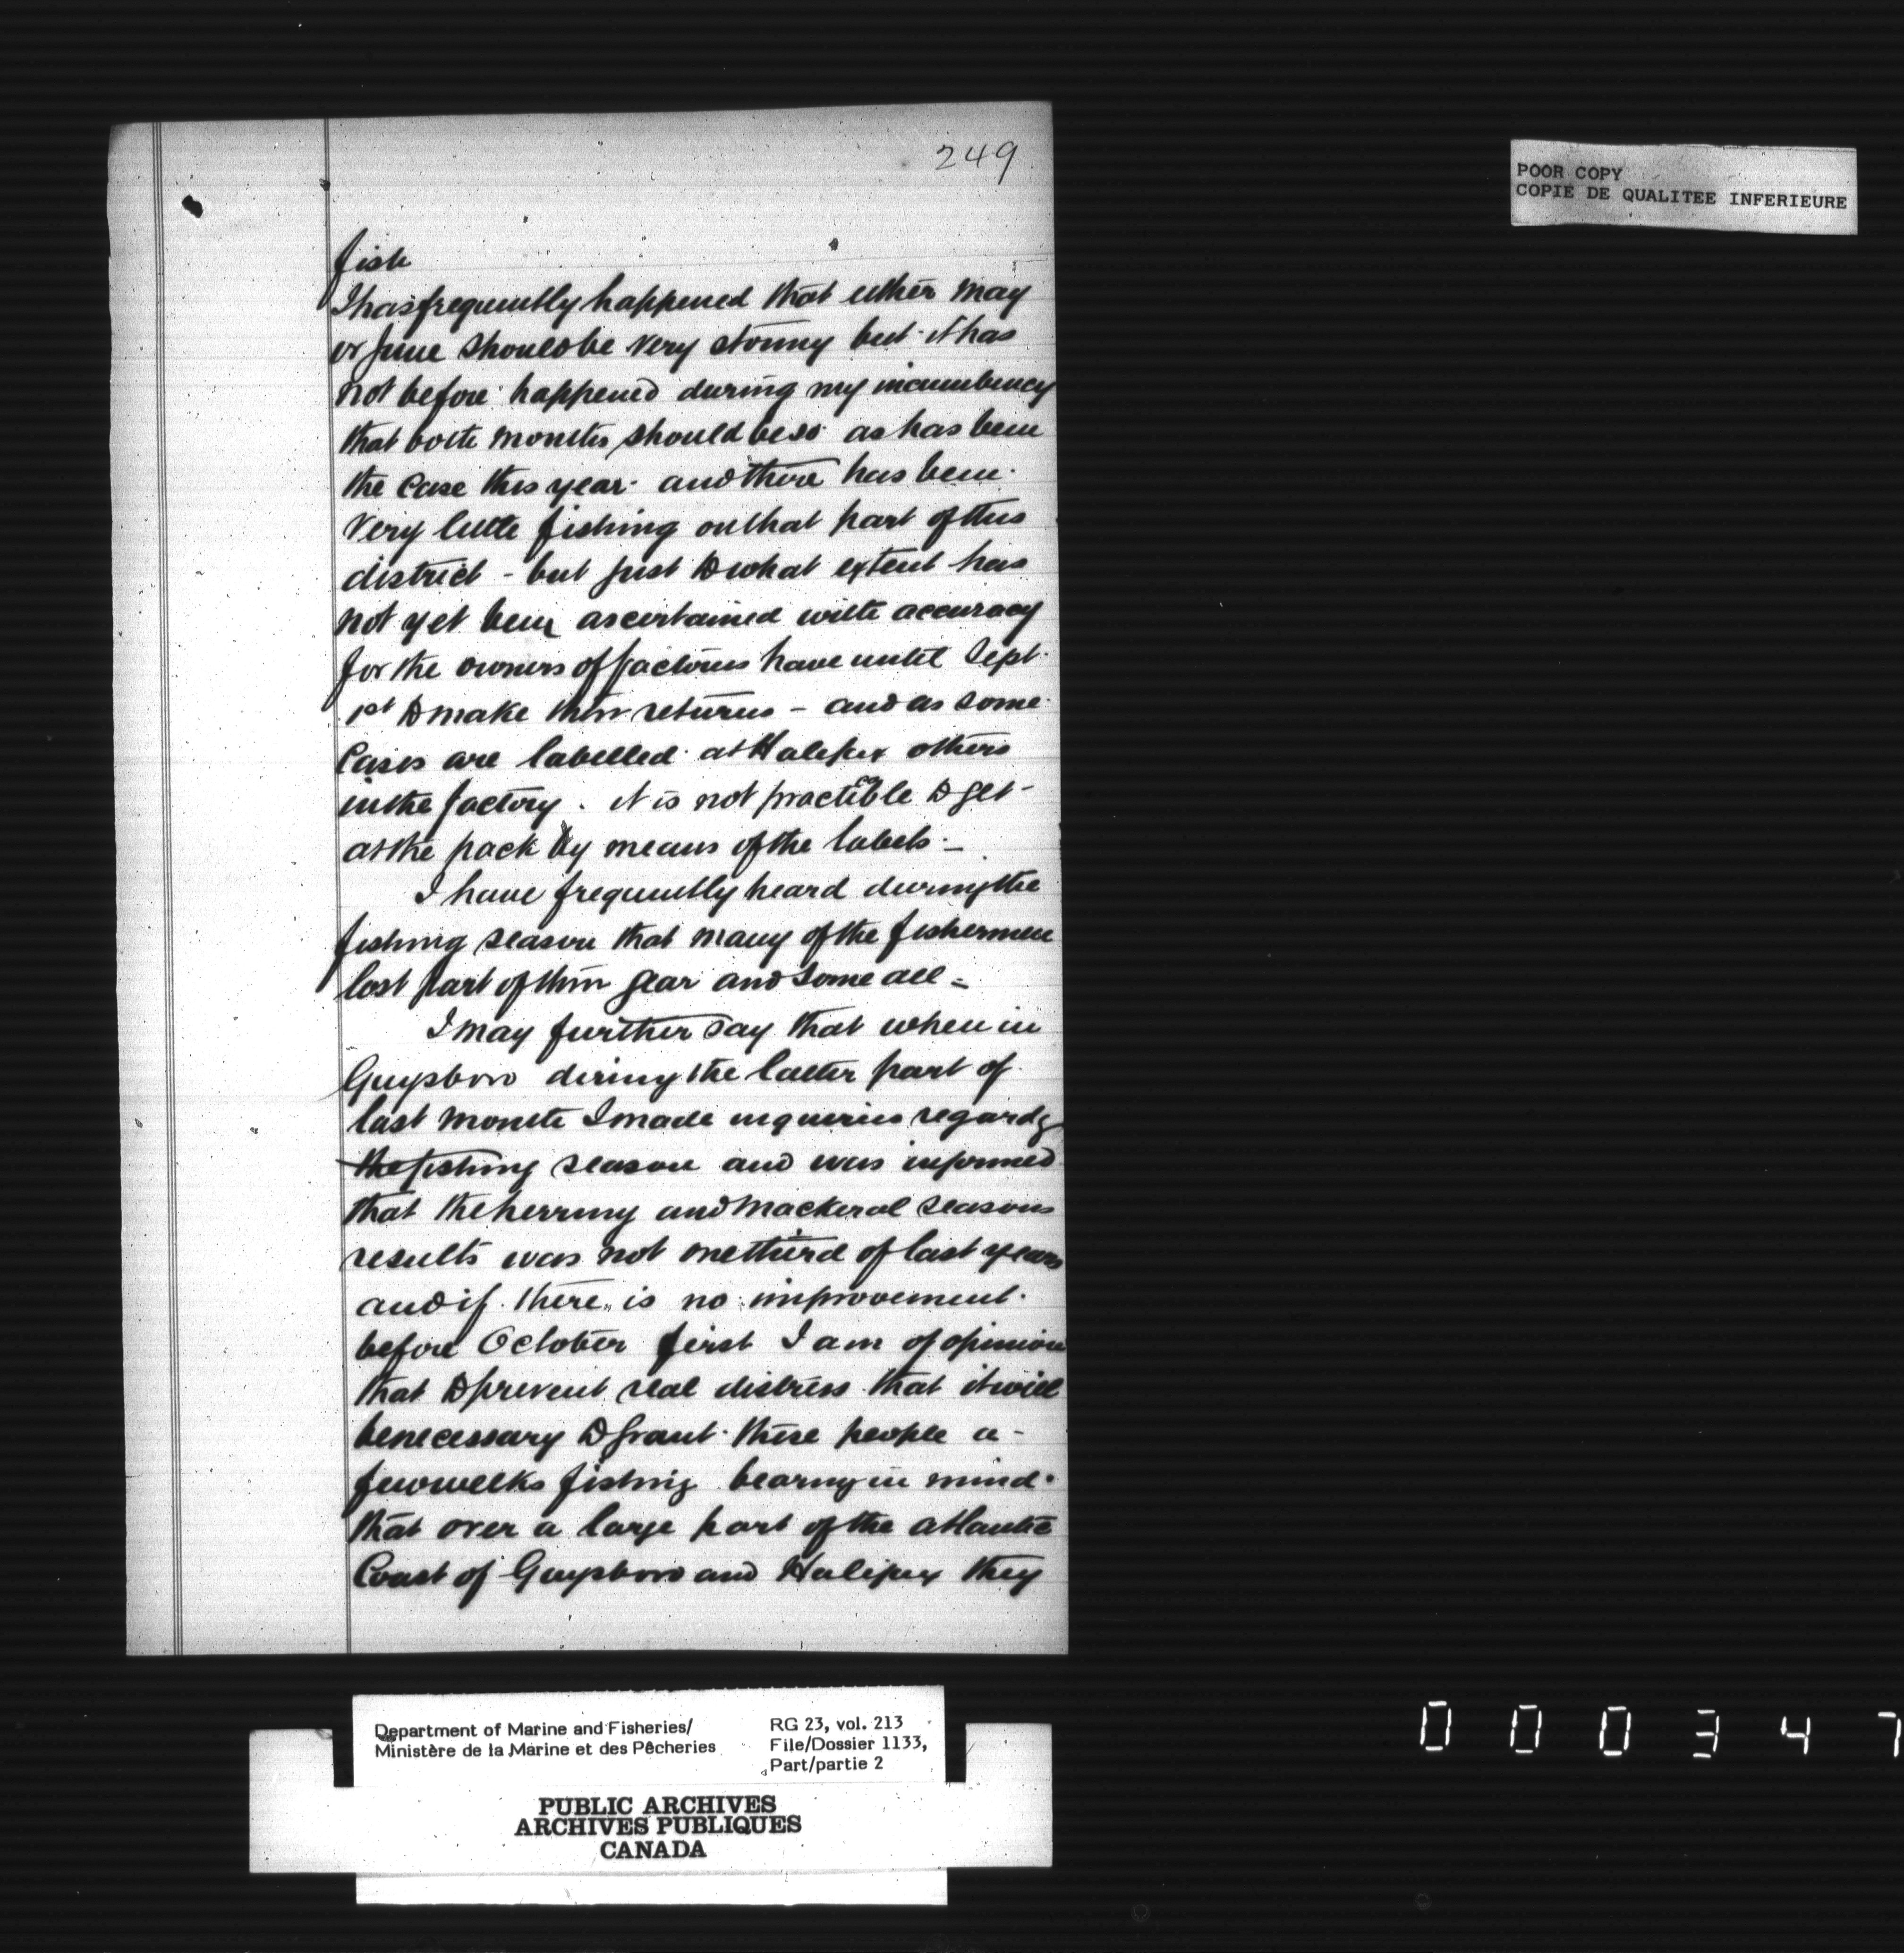 249
POOR COPY
COPIE DE QUALITEE INFERIEURE
fish
It has frequently happened that either May
or June should be very stormy but it has
not before happened during my incumbency
that both months should be so as has been
the case this year and there has been
very little fishing on that part of this
district - but just to what extent has
not yet been ascertained with accuracy
for the owners of factories have until Sept.
1st to make their returns - and as some
Cases are labelled at Halifax others
in the factory. it is not practicable to get
at the pack by means of the labels. -
I have frequently heard during the
fishing season that many of the fishermen
lost part of their gear and some all -
I may further say that when in
Guysboro during the latter part of
last month I made inquiries regardg
the fishing season and was informed
that the herring and Mackeral seasons
results was not one third of last years
and if there is no improvement.
before October first I am of opinion
that to prevent real distress that it will
be necessary to grant these people a
few weeks fishing bearing in mind
that over a large part of the Atlantic
Coast of Guysboro and Halifax they
Department of Marine and Fisheries/
Ministère de la Marine et des Pêcheries
RG 23, vol. 213
File/Dossier 1133,
Part/partie 2
PUBLIC ARCHIVES
ARCHIVES PUBLIQUES
CANADA
0 0 0 3 4 7